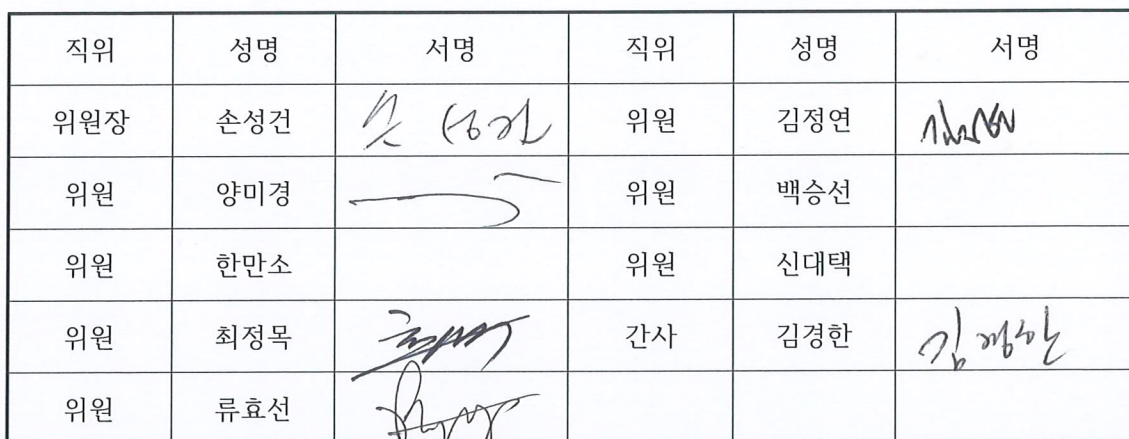 직위 성명 서명 직위 성명 서명
위원장 손성건 손성건 위원 김정연
위원 양미경 위원 백승선
위원 한만소 위원 신대택
위원 최정목 간사 김경한 김경한
위원 류효선